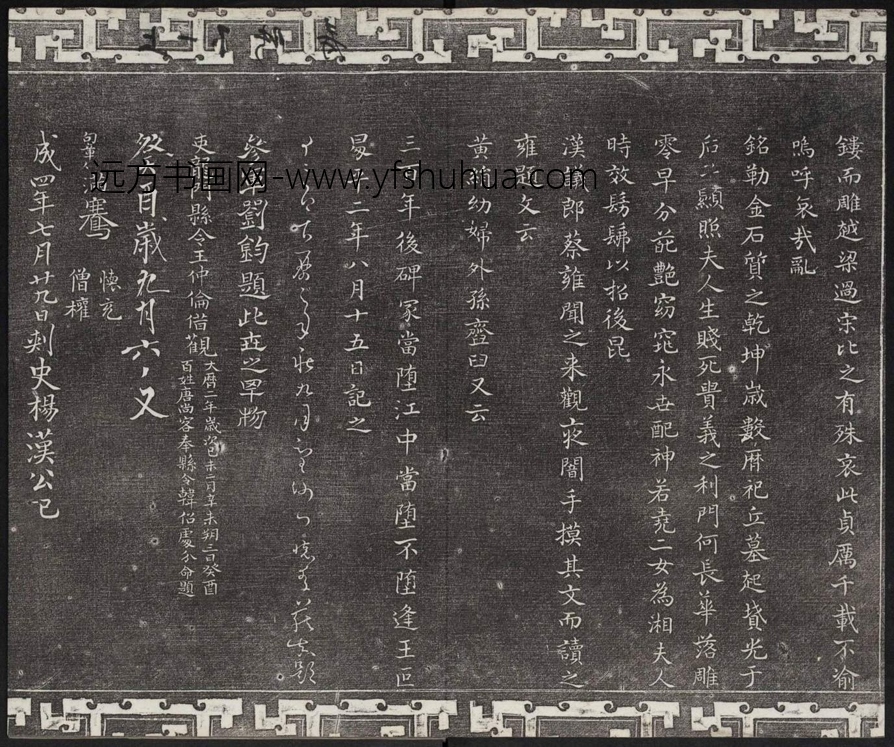 鏤而雕越梁過宋比之有殊哀此貞厲千載不渝
嗚呼哀哉亂
銘勒金石質之乾坤歲數曆祀丘墓起墳光于
后土顯照夫人生賤死貴義之利門何長華落雕
零早分葩艷窈窕永世配神若堯二女為湘夫人
時效髣髴以招後昆
漢議郎蔡雍聞之來觀夜闇手摸其文而讀之
雍題文云
黃絹幼婦外孫齏臼又云
三百年後碑冢當墮江中當墮不墮逢王叵
昇平二年八月十五日記之
參軍劉鈞題此世之罕物
吏部 縣令王仲倫借觀
大曆二年歲 未二月辛未朔三日癸酉
百姓唐尚客奉縣令韓偘處分命題
歲九月六 又
騫
懷充
僧權
成四年七月廿九日刺史楊漢公記
远方书画网-www.yfshuhua.com